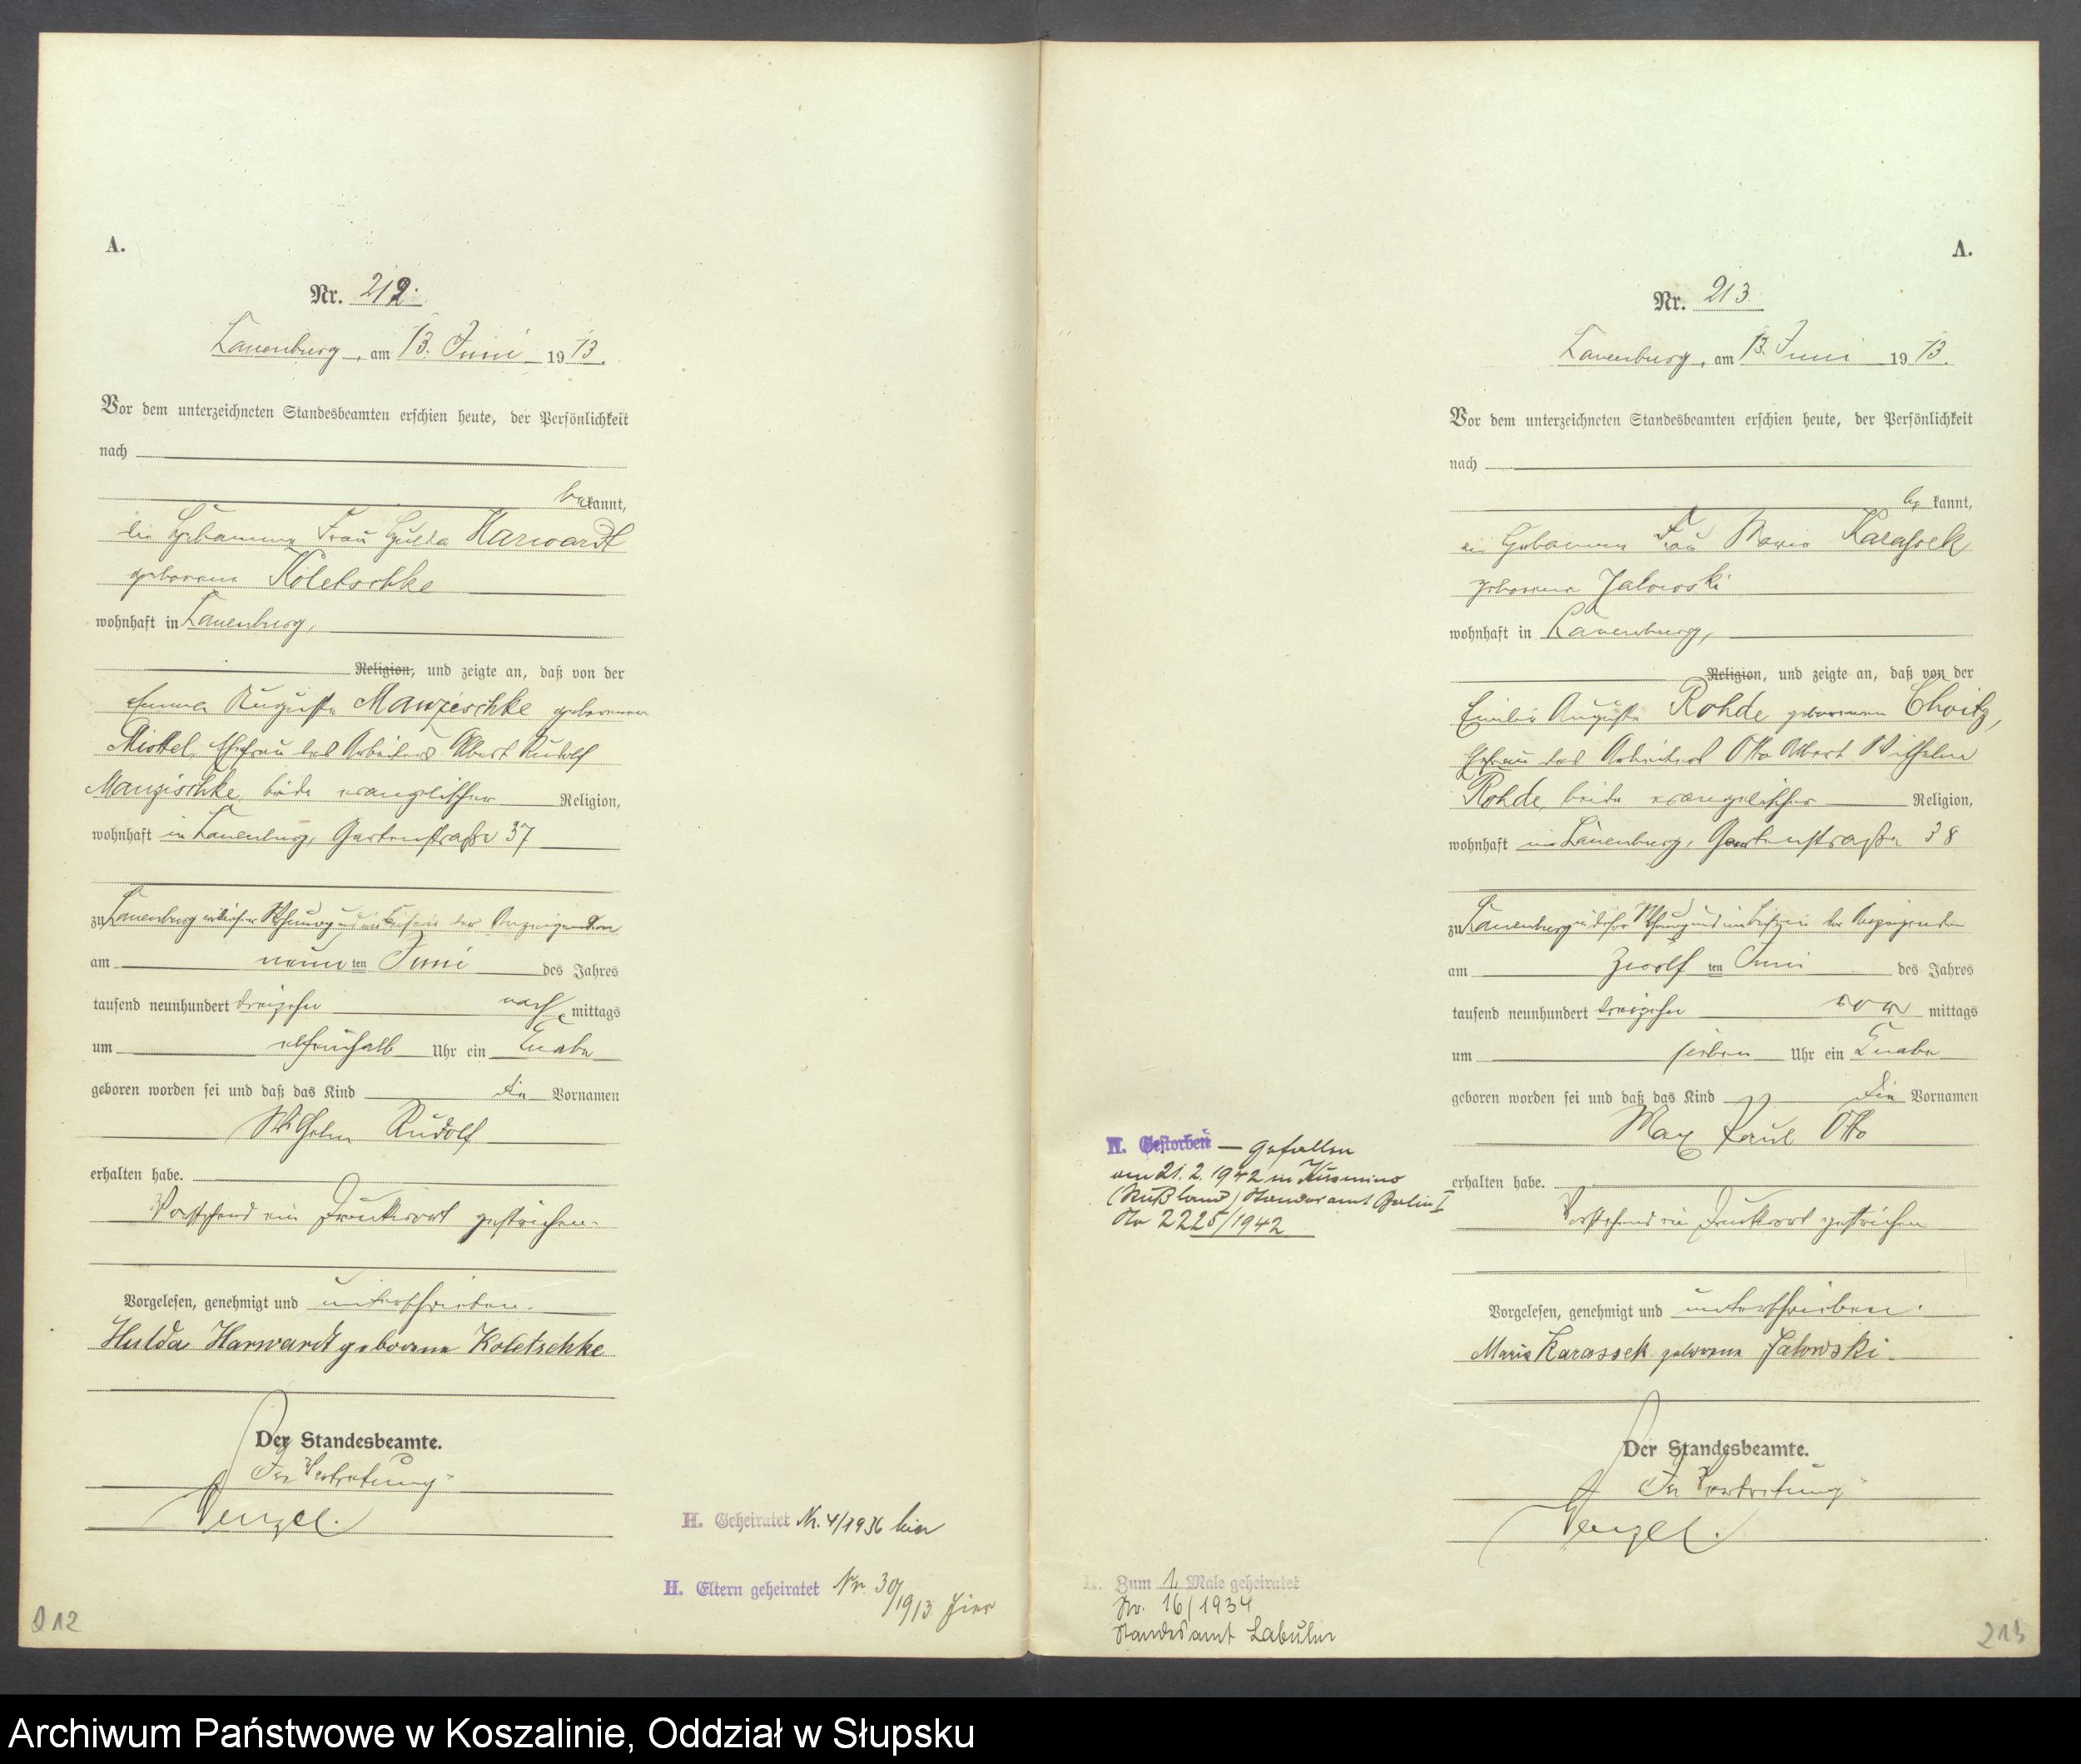 A.
Nr. 212.
Lauenburg, am 13. Juni 1913.
Vor dem unterzeichneten Standesbeamten erschien heute, der Persönlichkeit
nach
bekannt,
die Hebamme Frau Hulda Harwardt
geborene Koletschke
wohnhaft in Lauenburg,
Religion, und zeigte an, daß von der
Emma Auguste Manzeschke geborenen
Mistel, Ehefrau des Arbeiters Albert Rudolf
Manzischke, beide evangelischer Religion,
wohnhaft in Lauenburg, Gartenstraße 37
zu Lauenburg in dieser Wohnung und im Beisein der Anzeigenden
am neunten Juni des Jahres
tausend neunhundert dreizehn nachmittags
um elfeinhalb Uhr ein Knabe
geboren worden sei und daß das Kind die Vornamen
Wilhelm Rudolf
erhalten habe.
Vorstehend ein Druckwort gestrichen.
Vorgelesen, genehmigt und unterschrieben.
Hulda Harwardt geborene Koletschke
Der Standesbeamte.
In Vertretung
Wenzel.
H. Geheiratet Nr. 4/1936 hier
H. Eltern geheiratet Nr. 30/1913 hier
212
A.
Nr. 213
Lauenburg, am 13. Juni 1913.
Vor dem unterzeichneten Standesbeamten erschien heute, der Persönlichkeit
nach
bekannt,
die Hebamme Frau Maria Karassek
geborene Jalowski
wohnhaft in Lauenburg,
Religion, und zeigte an, daß von der
Emilie Auguste Rohde geborenen Choitz,
Ehefrau des Arbeiters Otto Albert Wilhelm
Rohde, beide evangelischer Religion,
wohnhaft in Lauenburg, Gartenstraße 38
zu Lauenburg in dieser Wohnung und im Beisein der Anzeigenden
am zwölften Juni des Jahres
tausend neunhundert dreizehn vor mittags
um sieben Uhr ein Knabe
geboren worden sei und daß das Kind die Vornamen
Max Paul Otto
erhalten habe.
Vorstehend ein Druckwort gestrichen
Vorgelesen, genehmigt und unterschrieben.
Maria Karassek geborene Jalowski.
Der Standesbeamte.
In Vertretung
Wenzel.
H. Gestorben – gefallen
am 21. 2. 1942 in
(Rußland) Standesamt Berlin I
Nr 2225/1942
H. Zum 1. Male geheiratet
Nr. 16/1934
Standesamt Labuhn
213
Archiwum Państwowe w Koszalinie, Oddział w Słupsku